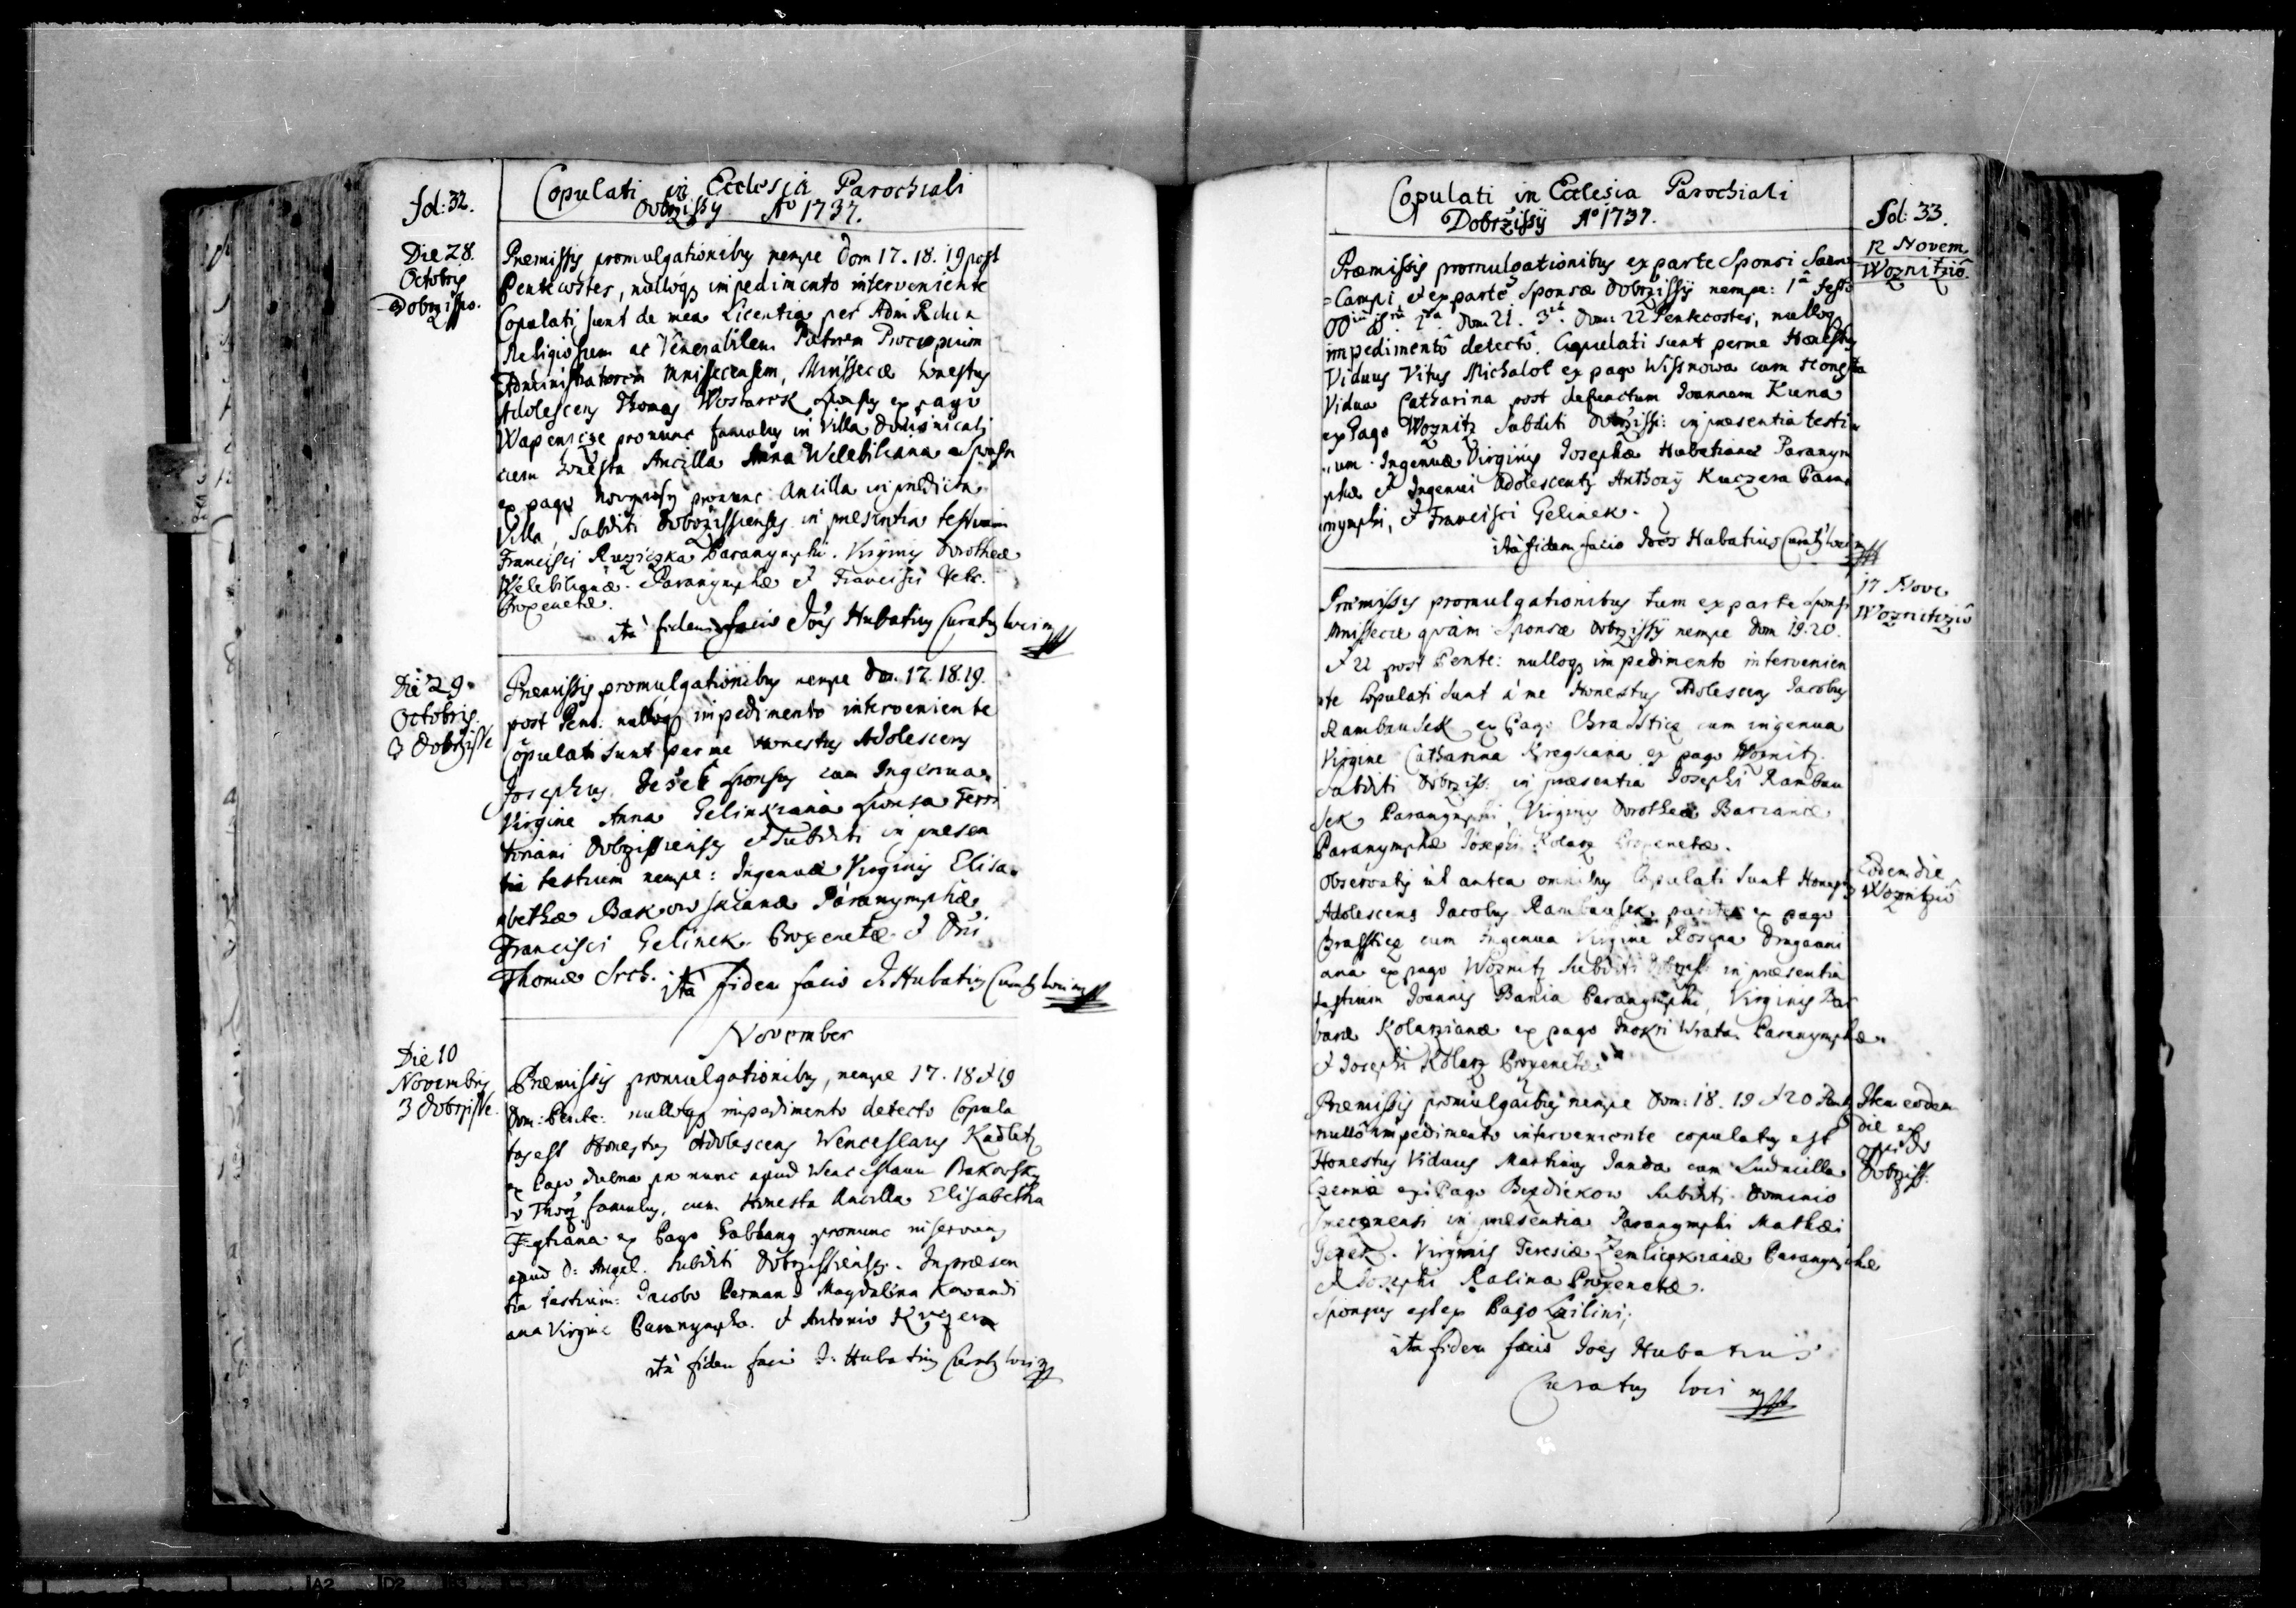 fol: 32.
Copulati in Ecclesia Parochiali
Dobrzissy Aº 1737.
Die 28.
Octobris
Dobrzisso.
Præmissis promulgationibus nempe Dom 17. 18. 19 post
Pentecostes, nulloq impedimento interveniente
Copulati sunt de mea Licentia per Adm Rdum
Religiosum ac Venerabilem Patrem Procopium
Administratorem Mnissecensem, Mnisseciæ honestus
Adolescens Thomas Wostarek Sponsus ex pago
Wapenicze pronunc famulus in Villa Dominicali
cum honesta Ancilla Anna Welebiliana Sponsa
ex pago pronunc Ancilla in prædicta
Villa, Subditi Dobrzissienses in præsentia testium
Francisci Ruziczka Paranymphi. Virginis Dorotheæ
Welebilianæ. Paranymphæ et Francisci
Proxenetæ.
ità fidem facio Joës Hubatius Curatus loci mpp
Die 29
Octobris.
3 Dobrzisse
Præmissis promulgationibus nempe Do. 17. 18. 19.
post Pent: nulloq impedimento interveniente
Copulati sunt per me honestus Adolescens
Josephus Sponsus cum Ingenua
Virgine Anna Gelinkiana Sponsa
toriani Dobrzissienses et Subditi in præsen
tia testium nempe: Ingenuæ Virginis Elisa
bethæ Bakowskianæ Paranymphæ
Francisci Gelinek Proxenetæ et Dni
Thomæ Srch. ità fidem facio J: Hubatius Curatus loci mpp
November
Die 10
Novembris
3 Dobrzisse.
Præmissis promulgationibus, nempe 17. 18 et 19
Dom: Pente: nulloq impedimento detecto Copula
tus est Honestus Adolescens Wenceslaus Kadletz
ex Pago pro nunc apud Wenceslaum Bakowsky
famulus, cum Honesta Ancilla Elisabetha
ex Pago pronunc inserviens
apud D: Angel. Subditi Dobrzissienses. In præsen
tia testium: Jacobo Perman et Magdalina Kowandi
ana Virgine Paranympha. et Antonio Kuczera
ità fidem facio J: Hubatius Curatus loci mpp
Copulati in Ecclesia Parochiali
Dobrzissÿ Aº 1737.
fol: 33.
12 Novem.
Woznitziô.
Præmissis promulgationibus ex parte Sponsi
Campi, et ex parte Sponsæ Dobrzissÿ nempe: 1â Festo
2da Dom 21. 3tia Dom: 22 Pentecostes, nulloq
impedimentô detectô. Copulati sunt per me Honestus
Viduus Vitus Michalot ex pago Wissnowa cum Honesta
Vidua Catharina post defunctum Joannem Kuna
ex Pago Woznitz Subditi Dobrziss: in præsentia testi
um. Ingenuæ Virginis Josephæ Hubatianæ Paranym
phæ et Ingenui Adolescentis Anthonÿ Kuczera Para
nymphi, et Francisci Gelinek.
ità fidem facio Joës Hubatius Curatus loci mpp
17 Nove
Woznitziô
Præmissis promulgationibus tum ex parte Sponsi
Mnisseciæ quàm Sponsæ Dobrzissÿ nempe Dom 19. 20.
et 22 post Pente: nulloq impedimento intervenien
te Copulati sunt à me Honestus Adolescens Jacobus
Rambausek ex Pago Chrassticz cum ingenua
Virgine Catharina ex pago Woznitz.
Subditi Dobrziss: in præsentia Josephi Rambau
sek Paranymphi, Virginis Dorotheæ
Paranymphæ Josephi Kolarz Proxenetæ.
Eodem die
Woznitziô
Observatis ut antea omnibus Copulati sunt Honestus
Adolescens Jacobus Rambausek pariter ex pago
Chrassticz cum Ingenua Virgine Rosina
ana ex pago Woznitz Subditi Dobrziss: in præsentia
testium Joannis Paranymphi, Virginis Bar
baræ Kolarzianæ ex pago Mokri Wrata Paranymphæ.
et Josephi Kolarz Proxenetæ
Item eodem
die ex
oppido
Dobrziss:
Præmissis promulgaibus nempe Dom: 18. 19 et 20
nullô impedimento interveniente copulatus est
Honestus Viduus Martinus Janda cum Ludmilla
ex Pago Bezdiekow Subditi Dominio
in præsentia Paranymphi Mathæi
Virginis Teresiæ Zemliczkianæ Paranymphæ
et Josephi Kalina Proxenetæ.
Sponsus est ex Pago
ità fidem facio Joës Hubatius
Curatus loci mpp